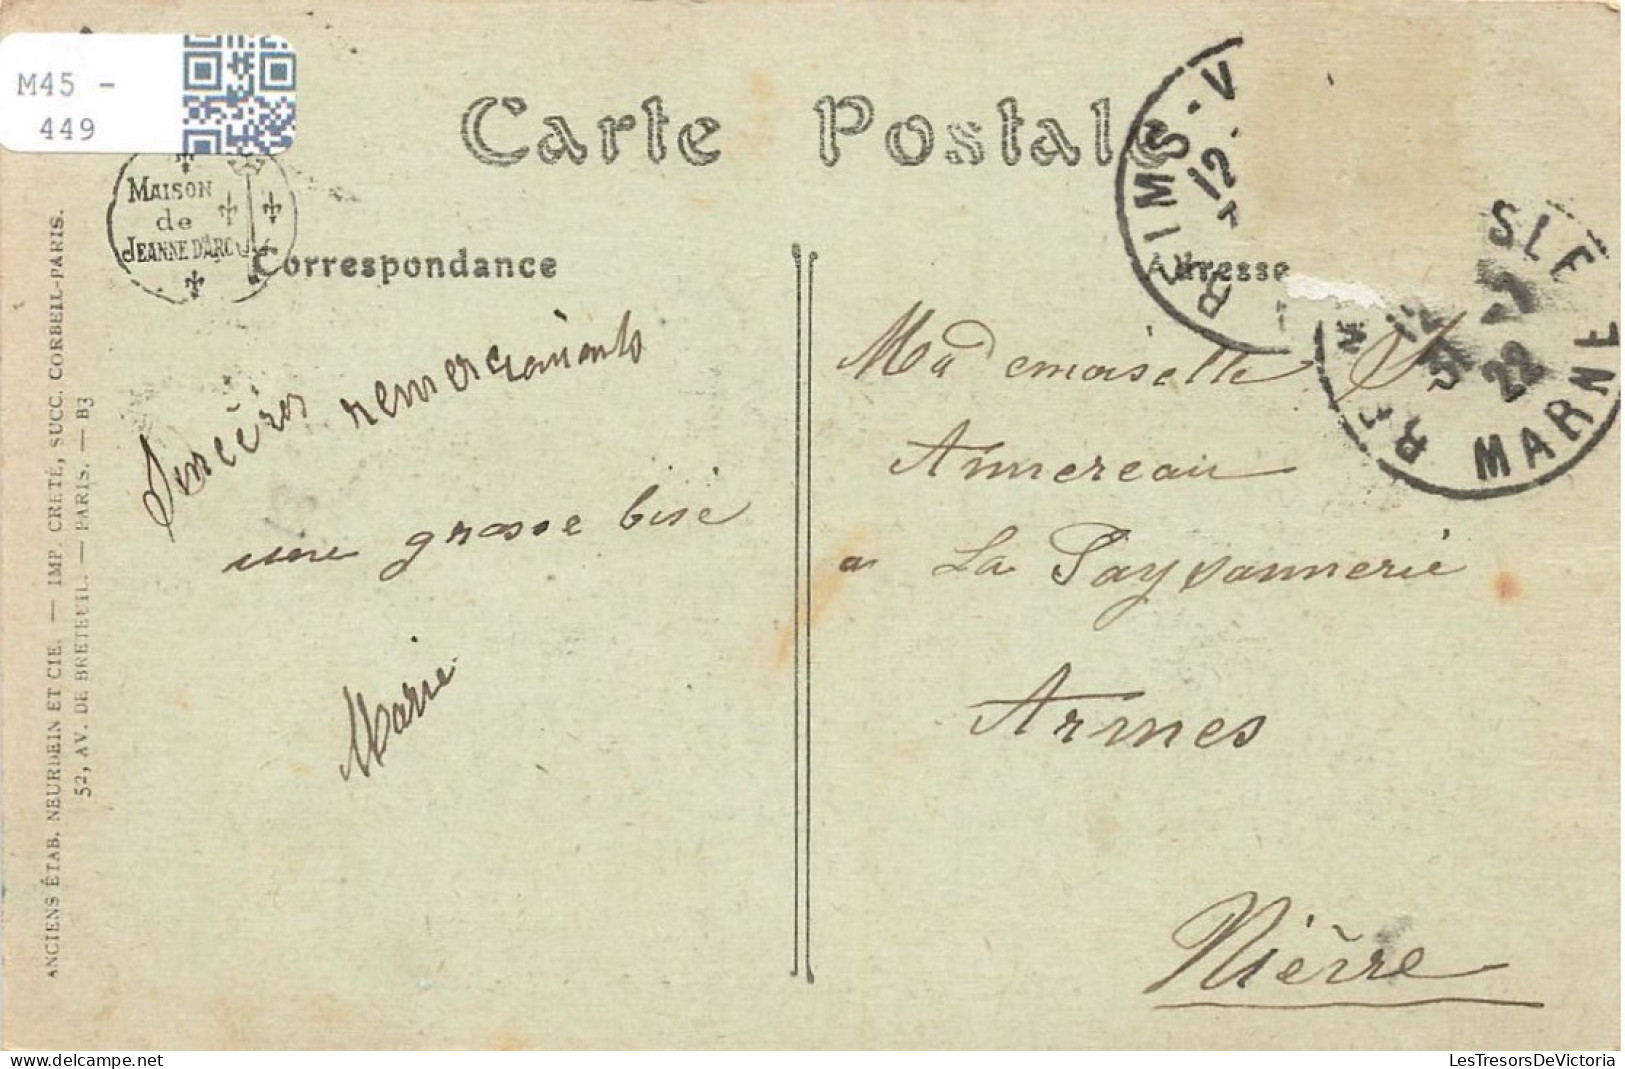 M45 -
449
Carte Postale
MAISON
de
JEANNE D'ARC
Correspondance
Adresse
REIMS-V
12
SLE
12
22
MARNE
Sincères remerciements
une grosse bise
Marie
Mademoiselle S
Annereau
a La Paysannerie
Armes
Nièvre
ANCIENS ÉTAB. NEURDEIN ET CIE. — IMP. CRÉTÉ, SUCC. CORBEIL-PARIS.
52, AV. DE BRETEUIL. — PARIS. — B3
LesTresorsDeVictoria